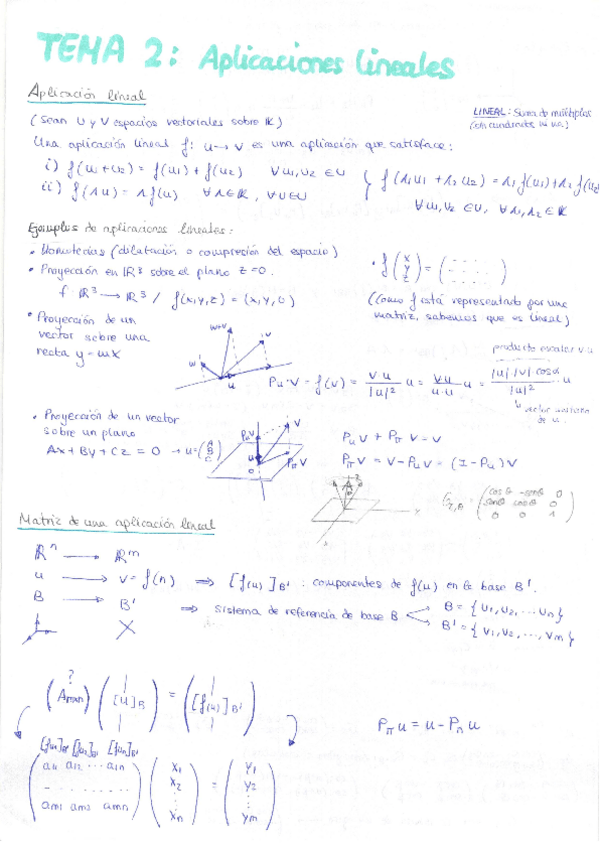 TEMA 2: Aplicaciones lineales
Aplicación lineal
(Sean U y V espacios vectoriales sobre K)
LINEAL: Suma de múltiplos
Una aplicación lineal f: U → V es una aplicación que satisface:
i) f(u₁+u₂) = f(u₁) + f(u₂) ∀u₁,u₂ ∈ U
ii) f(λu) = λf(u) ∀λ∈K, ∀u∈U
{ f(λ₁u₁ + λ₂u₂) = λ₁f(u₁)+λ₂f(u₂)
∀u₁,u₂ ∈U, ∀λ₁,λ₂∈K
Ejemplos de aplicaciones lineales:
• Homotecias (dilatación o compresión del espacio)
• Proyección en ℝ³ sobre el plano z=0.
f ℝ³ → ℝ³ / f(x,y,z) = (x,y,0)
• f(x y z) = (- - - -)
(Como f está representado por una
matriz, sabemos que es lineal)
• Proyección de un
vector sobre una
recta y=mx
w+v
w
v
u
producto escalar v·u
Pu·v = f(v) = v·u/|u|² u = v·u/u·u u = |u||v|cosα/|u|² · u
vector unitario
de u
• Proyección de un vector
sobre un plano
Ax+By+Cz = 0 → u=(A B C)
Pᵤv
v
u
P_πv
Pᵤv + P_πv = v
P_πv = v - Pᵤv = (I-Pᵤ)v
G z,θ = (cosθ -senθ 0
senθ cosθ 0
0 0 1)
Matriz de una aplicación lineal
ℝⁿ → ℝᵐ
u → v = f(u) ⇒ [f(u)]B' : componentes de f(u) en la base B'.
B → B' ⇒ sistema de referencia de base B
B = {u₁,u₂,...uₙ}
B' = {v₁,v₂,...,vₘ}
?
(Amxn) ([u]B) = ([f(u)]B')
P_π u = u - Pₙ u
[f(u₁)]B' [f(u₂)]B' [f(uₙ)]B'
(a₁₁ a₁₂ ... a₁ₙ
- - - - - -
aₘ₁ aₘ₂ aₘₙ) (x₁ x₂ ⋮ xₙ) = (y₁ y₂ ⋮ yₘ)